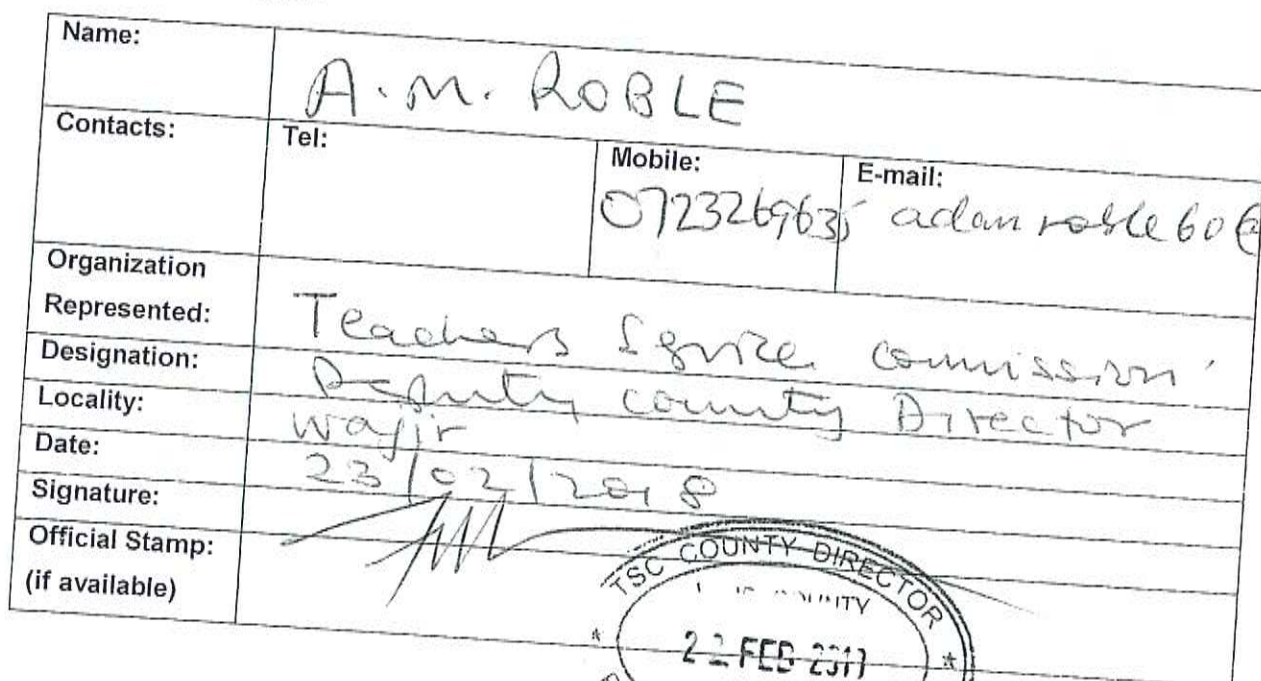 Name: A. M. ROBLE
Contacts: Tel: Mobile: E-mail:
0723269635 adanroble60@
Organization
Represented: Teachers Service Commission
Designation: Deputy County Director
Locality: Wajir
Date: 23/02/2018
Signature:
Official Stamp:
(if available)
TSC COUNTY DIRECTOR
COUNTY
22 FEB